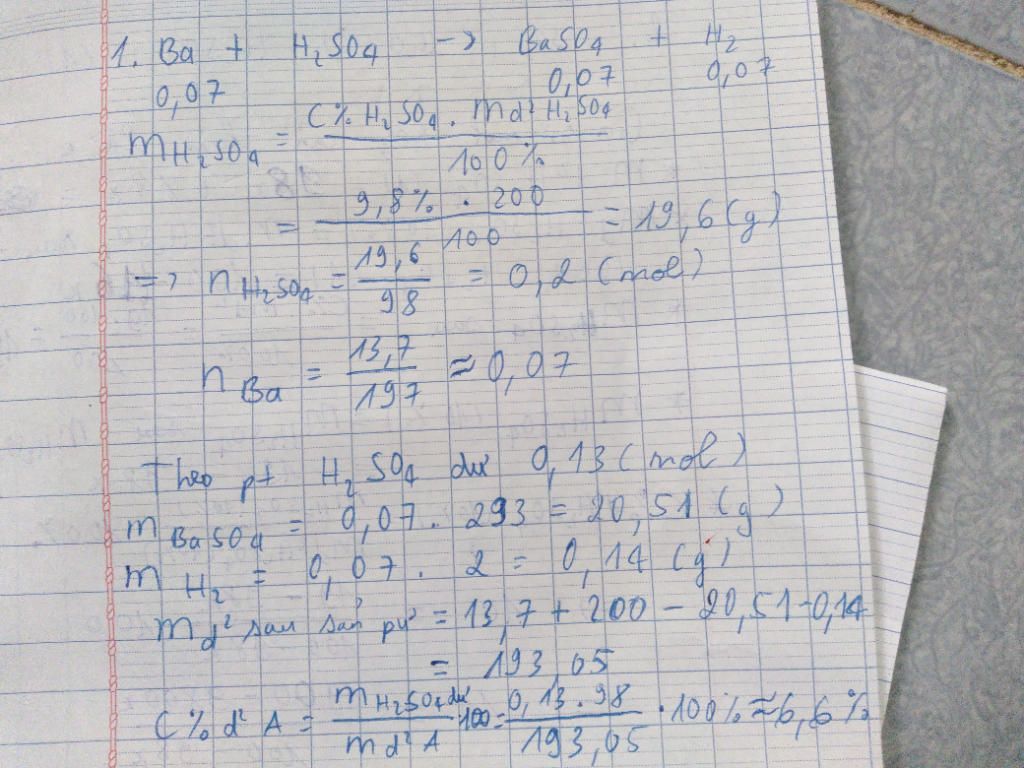 1. Ba + H₂SO₄ -> BaSO₄ + H₂
0,07 0,07 0,07
m H₂SO₄ = C% H₂SO₄ . md² H₂SO₄ / 100%
= 9,8% . 200 / 100 = 19,6 (g)
=> n H₂SO₄ = 19,6 / 98 = 0,2 (mol)
n Ba = 13,7 / 197 ≈ 0,07
Theo pt H₂SO₄ dư 0,13 (mol)
m BaSO₄ = 0,07 . 293 = 20,51 (g)
m H₂ = 0,07 . 2 = 0,14 (g)
md² sau pư = 13,7 + 200 - 20,51 - 0,14
= 193,05
C% d² A = m H₂SO₄ dư / md² A .100 = 0,13 . 98 / 193,05 . 100% ≈ 6,6%